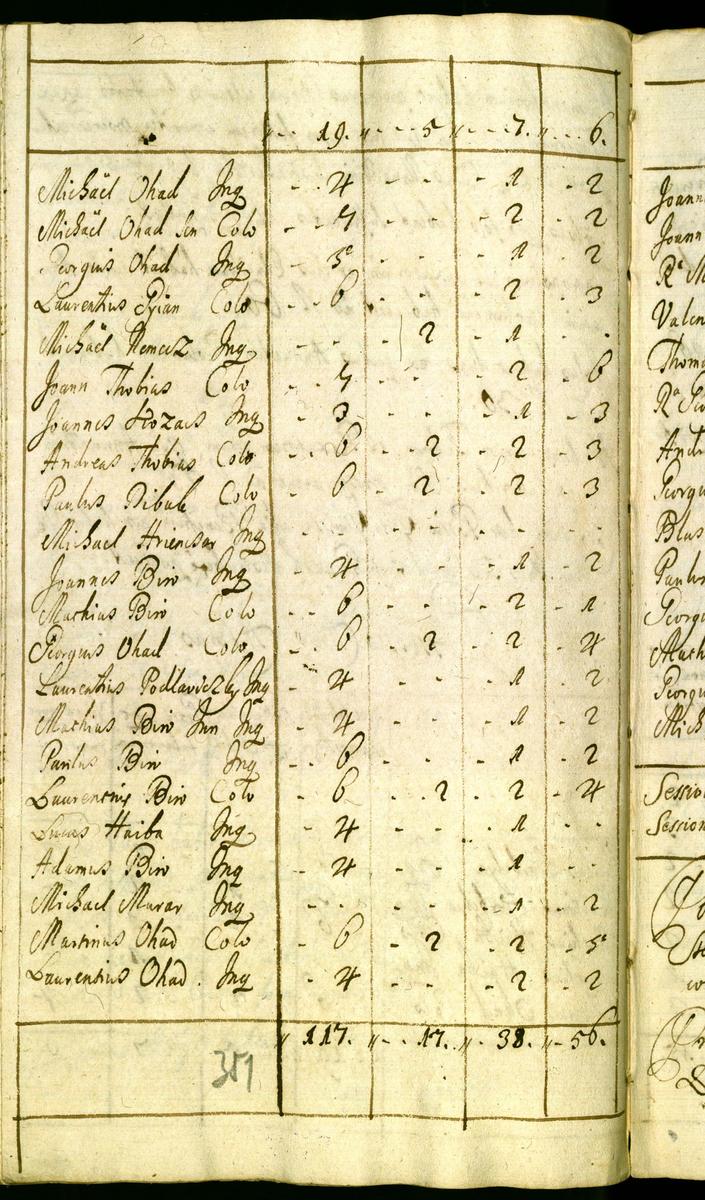 „ - - 19. „ - - 5 „ - - 7. „ - - 6.
Michaël Ohad Inq - 4 - - - 1 - 2
Michaël Ohad Sen Colo - 7 - - - 2 - 2
Georgius Ohad Inq - 5 - - - 1 - 2
Laurentius Pjian Colo - 6 - - - 2 - 3
Michaël Nemecz Inq - - - 2 - 1 - -
Joann Thobias Colo - 7 - - - 2 - 6
Joannes Inq - 3 - - - 1 - 3
Andreas Thobias Colo - 6 - 2 - 2 - 3
Paulus Dibak Colo - 6 - 2 - 2 - 3
Michael Inq - - - - - - - -
Joannes Biro Inq - 4 - - - 1 - 2
Mathias Biro Colo - 6 - - - 2 - 1
Georgius Ohad Colo - 6 - 2 - 2 - 4
Laurentius Podlaviczky Inq - 4 - - - 1 - 2
Mathias Biro Jun Inq - 4 - - - 1 - 2
Paulus Biro Inq - 6 - - - 1 - 2
Laurentius Biro Colo - 6 - 2 - 2 - 4
Lucas Haiba Inq - 4 - - - 1 - -
Adamus Biro Inq - 4 - - - 1 - -
Michael Murar Inq - - - - - 1 - 2
Martinus Ohad Colo - 6 - 2 - 2 - 5
Laurentius Ohad Inq - 4 - - - 2 - 2
„ 117. „ - - 17. „ - 38. „ - 56.
351
Joann
Joann
Valen
Thom
Andr
Georgi
Blas
Paulu
Georgi
Math
Georgi
Mich
Sessio
Session